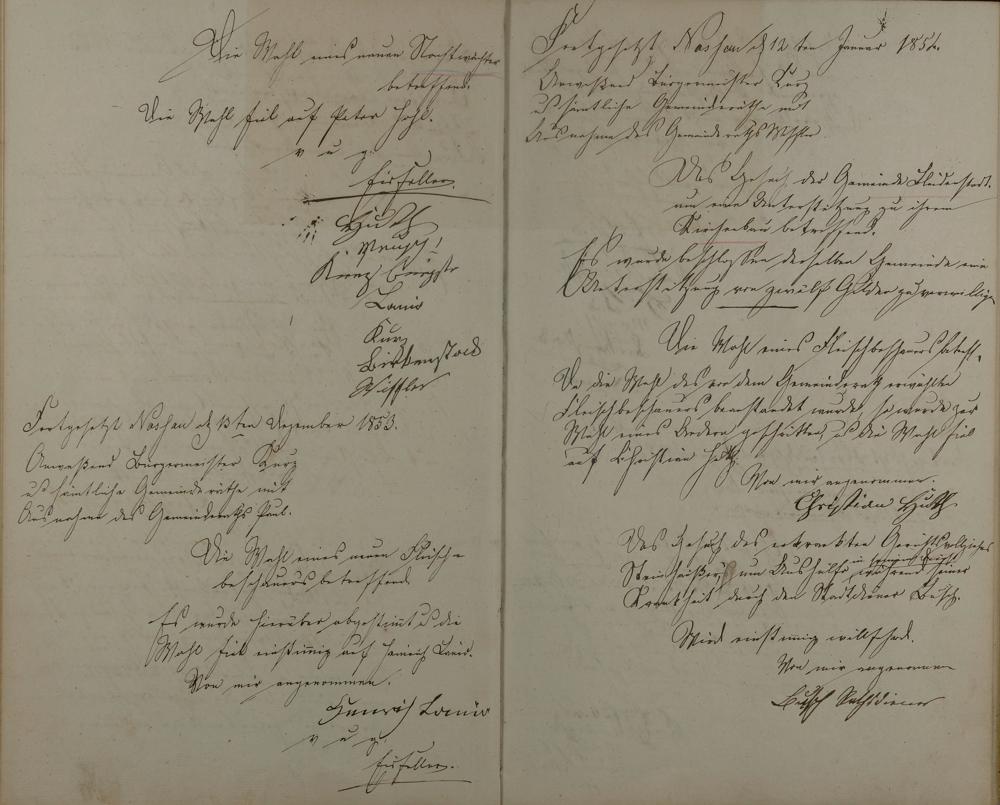 Die Wahl eines neuen Nachtwächters
betreffend.
Die Wahl fiel auf Peter Hohl.
v u g.
Eisfeller.
Huth
Reusch
Kunz Bürgstr
Lanio
Kurz
Birkenstock
Wissler
Fortgesetzt Nassau d 13ten Dezember 1853.
Anwesend Bürgermeister Kurz
u sämtliche Gemeinderäthe mit
Ausnahme des Gemeinderaths Paul.
Die Wahl eines neuen Fleisch-
beschauers betreffend
Es wurde hierüber abgestimmt u die
Wahl fiel einstimmig auf Heinrich Lanio.
Von mir angenommen.
Henrich Lanio
v u g.
Eisfeller.
Fortgesetzt Nassau d 12ten Januar 1854.
Anwesend Bürgermeister Kurz
u sämtliche Gemeinderäthe mit
Ausnahme des Gemeinderaths Wissler
Das Gesuch der Gemeinde
um eine Unterstützung zu ihrem
Kirchenbau betreffend.
Es wurde beschlossen derselben Gemeinde eine
Unterstützung von zwölf Gulden zu verwilligen
Die Wahl eines Fleischbeschauers betreff.
Da die Wahl des von dem Gemeinderath erwählten
Fleischbeschauers beanstandet wurde, so wurde zur
Wahl eines Andern geschritten, u die Wahl fiel
auf Christian Huth.
Von mir angenommen.
Christian Huth
Das Gesuch des erkrankten Gerichtsvollziehers
um Aushülfe in während seiner
Krankheit durch den Stadtdiener Busch.
Wird einstimmig willfahrt.
Von mir angenommen
Busch